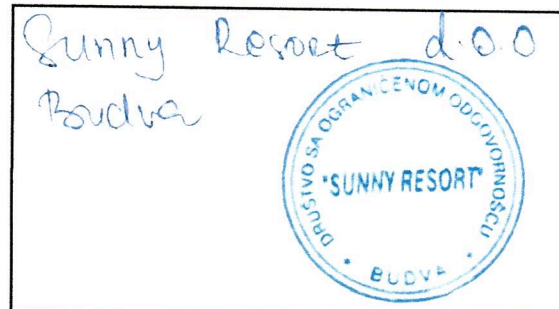 Sunny Resort d.o.o
Budva
DRUŠTVO SA OGRANIČENOM ODGOVORNOŠĆU
"SUNNY RESORT"
* BUDVA *